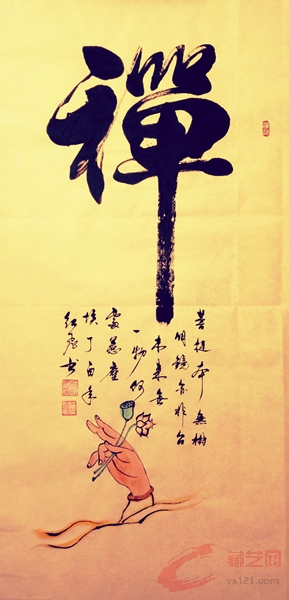 禪
菩提本無樹
明鏡亦非台
本来無
一物何
處惹塵
埃丁酉年
红书
藏艺网
ys121.com